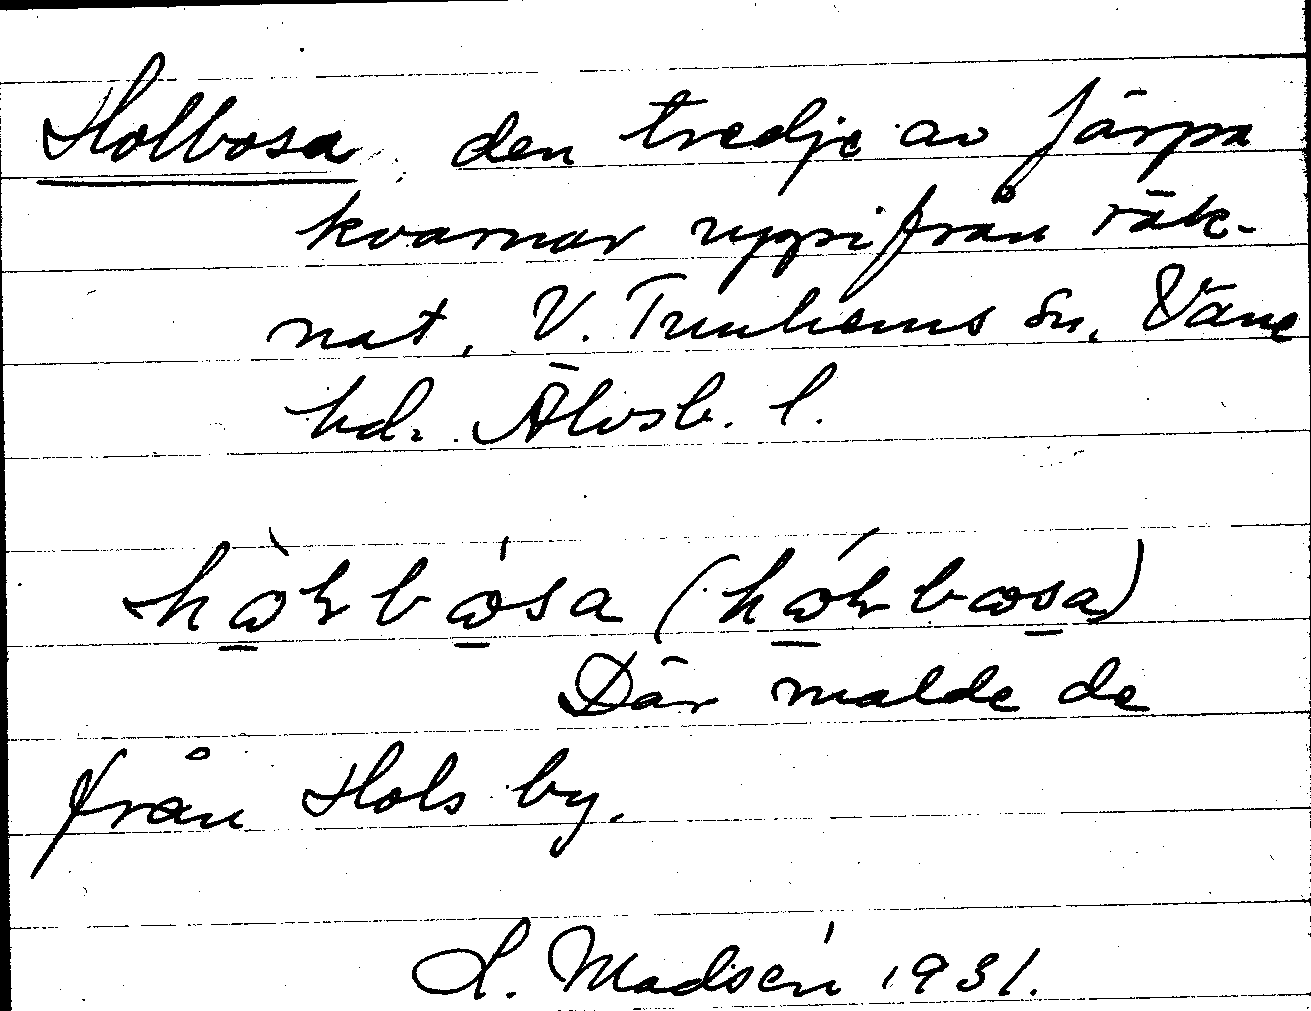 Holbosa, den tredje av Järpa
kvarnar uppifrån räk-
nat, V. Tunhems sn, Väne
hd. Älvsb. l.
Där malde de
från Hols by.
L. Madsén 1931.